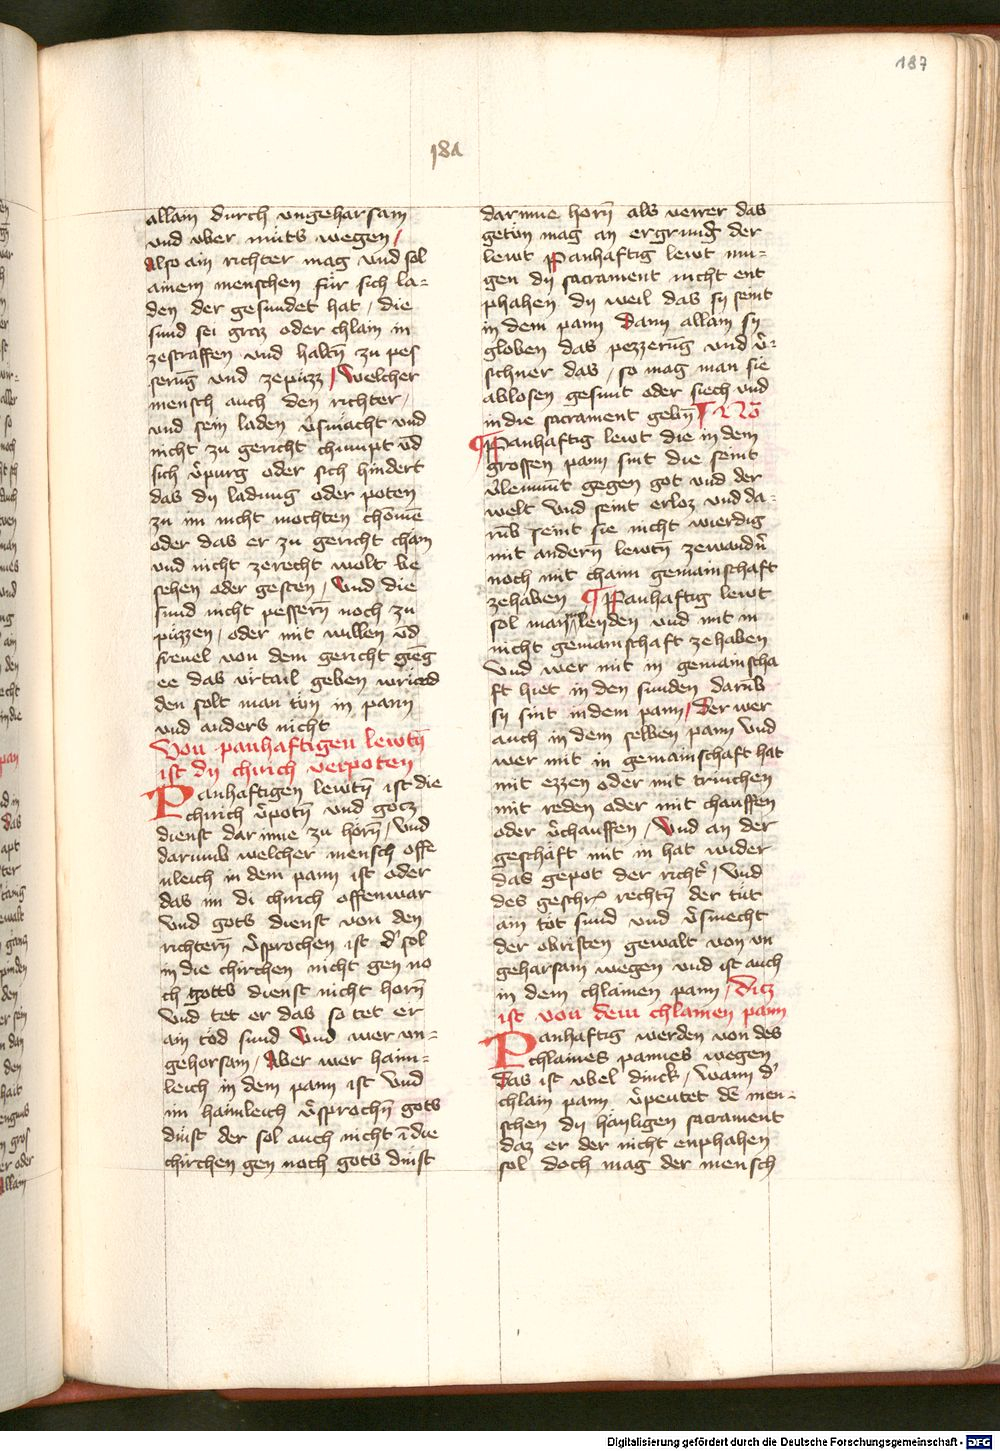 187
184
allain durch vngeharsam
vnd vber müts wegen /
Also ain richter mag vnd sol
ainem menschen für sich la=
den der gesundet hat / die
sund sei groz oder chlain in
zestraffen vnd haltn̄ zu pes
serūg vnd zepüzz / Welcher
mensch auch den richter /
vnd sein laden v̓smächt vnd
nicht zu gericht chumpt vn̄d
sich v̓purg oder sich hindert
das dy ladung oder poten
zu im nicht mochten chōmē
oder das er zu gericht chäm
vnd nicht zerecht wolt be
sehen oder gesten / Vnd die
sund nicht pessern̄ noch zu
püzzen / oder mit willen vn̄d
freuel von dem gericht gieng
ee das vrtail geben wricd
den solt man tün in pann
vnd anders nicht
Von panhaftigen lewtn̄
ist dy chirich verpoten
Panhaftigen lewtn̄ ist die
chirich v̓potn̄ vnd gocz
dienst dar inne zu hörn̄ / Vnd
darumb welcher mensch offe
nleich in dem pann ist oder
das im di chirich offenwar
Vnd gots dienst von den
richtern̄ v̓sprochen ist d̓ sol
in die chirchen nicht gen no
ch gotts dienst nicht horn̄
Vnd tet er das so tet er
ain töd sund Vnd wer vn=
gehorsam / Aber wer haim=
leich in dem pann ist Vnd
im haimleich v̓sprochn̄ gots
dinst der sol auch nicht ī die
chirchen gen noch gots dinst
darinne horn̄ als verrer das
getün mag an ergrund̓ der
lewt Panhaftig lewt mu=
gen dy sacrament nicht ent
phahen dy weil das sy seint
in dem pann Dann allain sy
globen das pezzerūg vnd v̓=
schner das / so mag man sie
ablosen gesunt oder siech vnd
in die sacrament gebn̄ ¶ No
¶ Panhaftig lewt die in dem
grossen pann sint die seint
v̓lewmt gegen got vnd der
welt Vnd seint erloz vnd da=
rūb seint sie nicht wierdig
mit andern̄ lewtn̄ zewandn̓
noch mit chain gemainschaft
zehaben ¶ Panhaftig lewt
sol man lenden vnd mit in
nicht gemainschaft zehaben
Vnd wer mit in gemainscha
ft hiet in den sunden darūb
sy sint in dem pann / Der wer
auch in dem selben pann Vnd
wer mit in gemainschaft hat
mit ezzen oder mit trinchen
mit reden oder mit chauffen
oder v̓chauffen / Vnd an der
geschäft mit in hat wider
das gepot der richt̓ / Vnd
des geschr̓ rechtn̄ der tüt
ain töt sund vnd v̓smecht
der obristen gewalt von vn
geharsam wegen vnd ist auch
in dem chlainen pann / Ditz
ist von dem chlainen pann
Panhaftig werden von des
chlaines pannes wegen
Das ist vbel dinck / Wann d̓
chlain pann v̓peutet dē men=
schen dy häyligen sacrament
daz er der nicht enphahen
sol doch mag der mensch
Digitalisierung gefördert durch die Deutsche Forschungsgemeinschaft - DFG